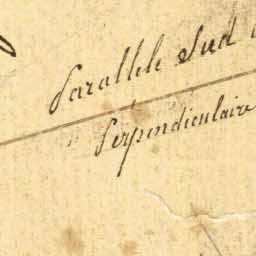 Parallele Sud
Perpendiculaire